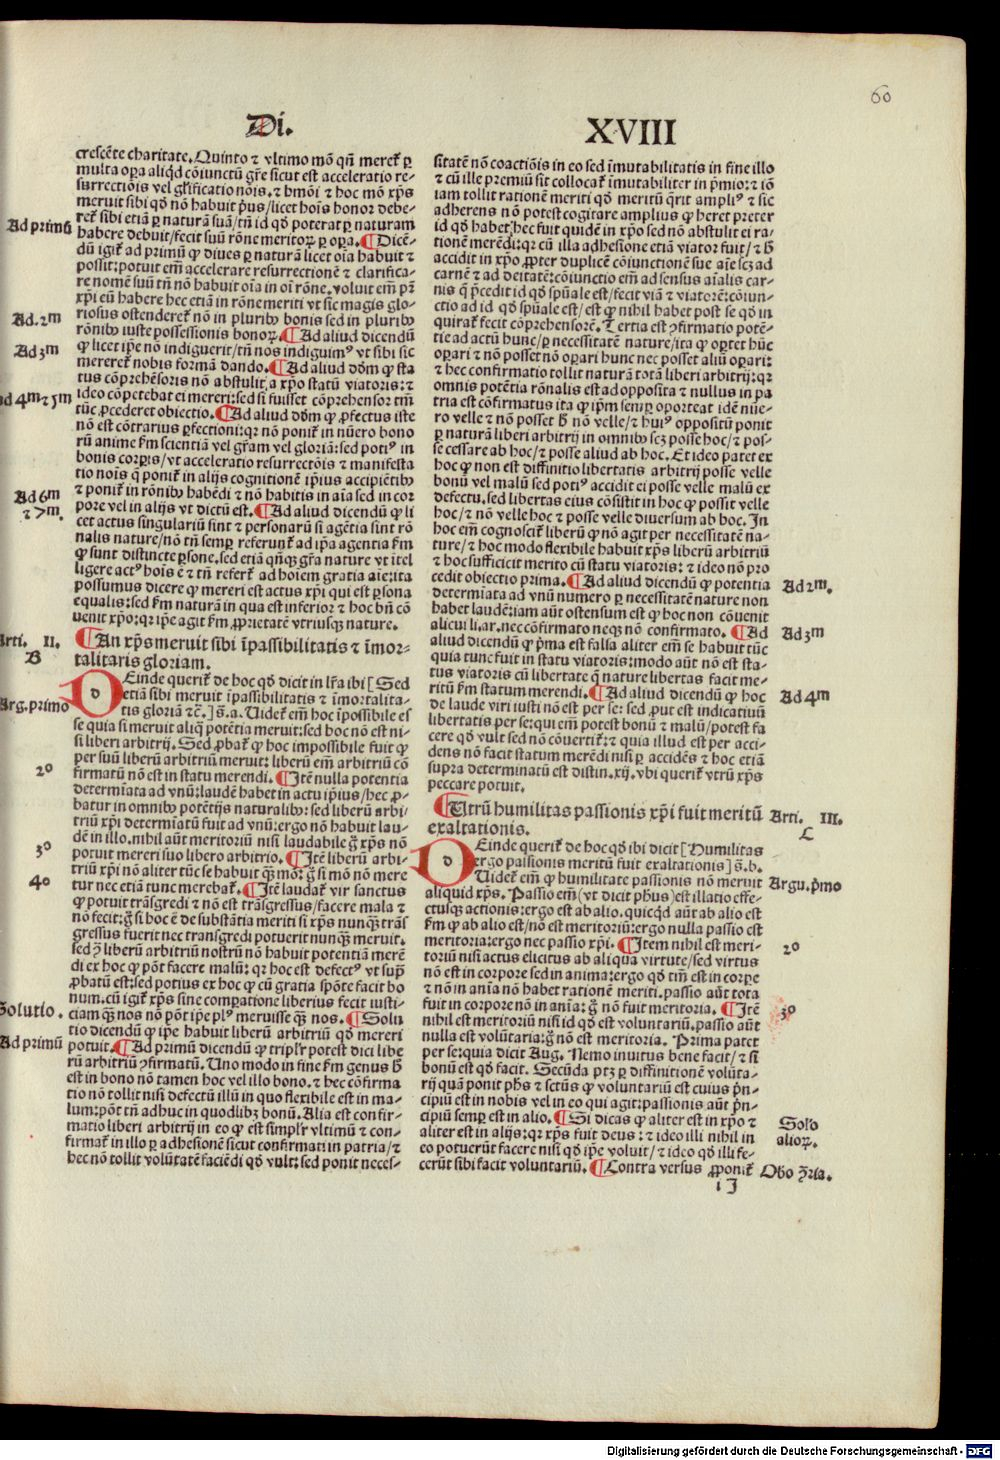 60
Di.
XVIII
crescẽte charitate. Quinto ⁊ vltimo mõ qñ meret᷑ ꝑ
multa oꝑa aliqd cõiunctũ gr̃e sicut est acceleratio re-
surrectiõis vel gl̃ificatio nõis. ⁊ hmõi ⁊ hoc mõ xp̃s
meruit sibi qd̃ nõ habuit p̃us/licet hoĩs honor debe-
Ad primũ
ret᷑ sibi etiã ꝑ naturã suã/tñ id qd̃ poterat ꝑ naturam
habere debuit/fecit suũ rõne meritoꝝ ꝑ oꝑa. ¶ Dicẽ-
dũ igit᷑ ad primũ ꝙ diues ꝑ naturã licet oĩa habuit ⁊
possit: potuit em̃ accelerare resurrectionẽ ⁊ clarifica-
re nomẽ suũ tñ nõ habuit oĩa in oĩ rõne. voluit em̃ pr̃
xp̃i eũ habere hec etiã in rõne meriti vt sic magis glo-
Ad. 2m
riosus ostenderet᷑ nõ in pluribꝰ bonis sed in pluribꝰ
rõnibꝰ iuste possessionis bonoꝝ. ¶ Ad aliud dicendũ
Ad 3m
ꝙ licet ip̃e nõ indiguerit/tñ nos indiguimꝰ vt sibi sic
mereret᷑ nobis formã dando. ¶ Ad aliud dõm ꝙ sta
tus cõprehẽsoris nõ abstulit a xp̃o statũ viatoris: ⁊
Ad 4m ⁊ 5m
ideo cõpetebat ei mereri: sed si fuisset cõprehensor tm̃
tũc ꝓcederet obiectio. ¶ Ad aliud dõm ꝙ ꝓfectus iste
nõ est cõtrarius ꝑfectioni: qꝛ nõ ponit᷑ in nũero bono
rũ anime ẜm scientiã vel gr̃am vel gloriã: sed potiꝰ in
bonis corꝑis/vt acceleratio resurrectõis ⁊ manifesta
tio noĩs q̃ ponit᷑ in alijs cognitionẽ ip̃ius accipiẽtibꝰ
Ad 6m
⁊ ponit᷑ in rõnibꝰ habẽdi ⁊ nõ habitis in aĩa sed in cor
⁊ 7m.
pore vel in alijs vt dictũ est. ¶ Ad aliud dicendũ ꝙ li
cet actus singulariũ sint ⁊ personarũ si agẽtia sint rõ
nalis nature/nõ tñ semꝑ referunt᷑ ad ip̃a agentia ẜm
ꝙ sunt distincte ꝑsone. sed etiã qñqꝫ gr̃a nature vt ĩtel
ligere actꝰ hoĩs ẽ ⁊ tñ refert᷑ ad hoĩem gratia aĩe: ita
possumus dicere ꝙ mereri est actus xp̃i qui est ꝑsona
equalis: sed ẜm naturã in qua est inferior ⁊ hoc bñ cõ
uenit xp̃o: qꝛ ip̃e agit ẜm ꝓprietatẽ vtriusqꝫ nature.
Arti. II.
B
¶ An xp̃s meruit sibi ĩpassibilitatis ⁊ ĩmor-
talitatis gloriam.
Deinde querit᷑ de hoc qd̃ dicit in lr̃a ibi [Sed
etiã sibi meruit ĩpassibilitatis ⁊ ĩmortalita-
Arg. primo
tis gloriã ⁊c̃.] §. a. Uidet᷑ em̃ hoc ĩpossibile es
se quia si meruit aliq̃ potẽtia meruit: sed hoc nõ est ni-
si liberi arbitrij. Sed ꝓbat᷑ ꝙ hoc impossibile fuit ꝙ
per suũ liberũ arbitriũ meruit: liberũ em̃ arbitriũ cõ
2º
firmatũ nõ est in statu merendi. ¶ Itẽ nulla potentia
determĩata ad vnũ: laudẽ habet in actu ip̃ius/hec ꝓ-
batur in omnibꝰ potẽtijs naturalibꝰ: sed liberũ arbi-
triũ xp̃i determĩatũ fuit ad vnũ: ergo nõ habuit lau-
dẽ in illo. nihil aũt meritoriũ nisi laudabile g̃ xp̃s nõ
3º
potuit mereri suo libero arbitrio. ¶ Itẽ liberũ arbi-
triũ xp̃i nõ aliter tũc se habuit qꝫ mõ: g̃ si mõ nõ mere
4º
tur nec etiã tunc merebat᷑. ¶ Itẽ laudat᷑ vir sanctus
ꝙ potuit trãsgredi ⁊ nõ est trãsgressus/facere mala ⁊
nõ fecit: g̃ si hoc ẽ de substãtia meriti si xp̃s nunqꝫ trãs
gressus fuerit nec transgredi potuerit nunqꝫ meruit.
sed ꝯ̃ liberũ arbitriũ nostrũ nõ habuit potentiã merẽ
di ex hoc ꝙ põt facere malũ: qꝛ hoc est defectꝰ vt supͣ
ꝓbatũ est: sed potius ex hoc ꝙ cũ gratia spõte facit bo
num. cũ igit᷑ xp̃s sine comꝑatione liberius fecit iusti-
Solutio.
ciam qꝫ nos nõ põt ip̃e plꝰ meruisse qꝫ nos. ¶ Solu
tio dicendũ ꝙ ip̃e habuit liberũ arbitriũ qd̃ mereri
Ad primũ
potuit. ¶ Ad primũ dicendũ ꝙ tripl̃r potest dici libe
rũ arbitriũ ꝯfirmatũ. Uno modo in fine ẜm genus ɦ̃
est in bono nõ tamen hoc vel illo bono. ⁊ hec cõfirma
tio nõ tollit nisi defectũ illũ in quo flexibile est in ma-
lum: põt tñ adhuc in quodlibꝫ bonũ. Alia est confir-
matio liberi arbitrij in eo ꝙ est simpl̃r vltimũ ⁊ con-
firmat᷑ in illo ꝑ adhesionẽ sicut confirmati in patria/⁊
hec nõ tollit volũtatẽ faciẽdi qd̃ vult: sed ponit neces-
sitatẽ nõ coactiõis in eo sed ĩmutabilitatis in fine illo
⁊ cũ ille premiũ sit collocat᷑ ĩmutabiliter in p̃mio: ⁊ iõ
iam tollit rationẽ meriti qd̃ meritũ q̃rit ampliꝰ ⁊ sic
adherens nõ potest cogitare amplius ꝙ heret preter
id qd̃ habet. hec fuit quidẽ in xp̃o sed nõ abstulit ei ra-
tionẽ merẽdi: qꝛ cũ illa adhesione etiã viator fuit/⁊ ɦ̃
accidit in xp̃o ꝓpter duplicẽ cõiunctionẽ sue aĩe scꝫ ad
carnẽ ⁊ ad deitatẽ: cõiunctio em̃ ad sensus aĩalis car-
nis q̃ p̃cedit id qd̃ spũale est/fecit viã ⁊ viatorẽ: cõiun-
ctio ad id qd̃ spũale est/est ꝙ nihil habet post se qd̃ in
quirat᷑ fecit cõprehensorẽ. Tertia est ꝯfirmatio potẽ-
tie ad actũ hunc/ꝑ necessitatẽ nature/ita ꝙ oꝑtet hũc
oꝑari ⁊ nõ posset nõ oꝑari hunc nec posset aliũ oꝑari:
⁊ hec confirmatio tollit naturã totã liberi arbitrij: qꝛ
omnis potẽtia rõnalis est ad opposita ⁊ nullus in pa
tria est cõfirmatus ita ꝙ ip̃m semꝑ oporteat idẽ nũe-
ro velle ⁊ nõ posset ɦ̃ nõ velle/⁊ huiꝰ oppositũ ponit
ꝑ naturã liberi arbitrij in omnibꝰ scꝫ posse hoc/⁊ pos-
se cessare ab hoc/⁊ posse aliud ab hoc. Et ideo patet ex
hoc ꝙ non est diffinitio libertatis arbitrij posse velle
bonũ vel malũ sed potiꝰ accidit ei posse velle malũ ex
defectu. sed libertas eius cõsistit in hoc ꝙ possit velle
hoc/⁊ nõ velle hoc ⁊ posse velle diuersum ab hoc. In
hoc em̃ cognoscit᷑ liberũ ꝙ nõ agit per necessitatẽ na-
ture/⁊ hoc modo flexibile habuit xp̃s liberũ arbitriũ
⁊ hoc sufficicit merito cũ statu viatoris: ⁊ ideo nõ pro
Ad 2m.
cedit obiectio prima. ¶ Ad aliud dicendũ ꝙ potentia
determĩata ad vnũ numero ꝑ necessitatẽ nature non
habet laudẽ: iam aũt ostensum est ꝙ hoc non cõuenit
Ad 3m
alicui li. ar. nec cõfirmato neqꝫ nõ confirmato. ¶ Ad
aliud dicendũ ꝙ p̃ma est falsa aliter em̃ se habuit tũc
quia tunc fuit in statu viatoris: modo aũt nõ est sta-
tus viatoris cũ libertate q̃ nature libertas facit me-
Ad 4m
ritũ ẜm statum merendi. ¶ Ad aliud dicendũ ꝙ hoc
de laude viri iusti nõ est per se: sed ꝓut est indicatiuũ
libertatis per se: qui em̃ potest bonũ ⁊ malũ/potest fa
cere qd̃ vult sed nõ cõuertit᷑: ⁊ quia illud est per acci-
dens nõ facit statum merẽdi nisi ꝑ accidẽs ⁊ hoc etiã
supra determinatũ est distin. xij. vbi querit᷑ vtrũ xp̃s
peccare potuit.
Arti. III.
C
¶ Utrũ humilitas passionis xp̃i fuit meritũ
exaltationis.
Deinde querit᷑ de hoc qd̃ ibi dicit [Humilitas
ergo passionis meritũ fuit exaltationis] §. b.
Argu. p̃mo
Uidet᷑ em̃ ꝙ humilitate passionis nõ meruit
aliquid xp̃s. Passio em̃ (vt dicit ph̃us) est illatio effe-
ctusqꝫ actionis: ergo est ab alio. quicqd̃ aũt ab alio est
ẜm ꝙ ab alio est/nõ est meritoriũ: ergo nulla passio est
2º
meritoria: ergo nec passio xp̃i. ¶ Item nihil est meri-
toriũ nisi actus elicitus ab aliqua virtute/sed virtus
nõ est in corpore sed in anima: ergo qd̃ tm̃ est in corꝑe
⁊ nõ in anĩa nõ habet rationẽ meriti. passio aũt tota
3º
fuit in corpore nõ in anĩa: g̃ nõ fuit meritoria. ¶ Itẽ
nihil est meritoriũ nisi id qd̃ est voluntariũ. passio aũt
nulla est volũtaria: g̃ nõ est meritoria. Prima patet
per se: quia dicit Aug. Nemo inuitus bene facit/⁊ si
bonũ est qd̃ facit. Secũda ptꝫ ꝑ diffinitionẽ volũta-
rij quã ponit ph̃s ⁊ sctũs ꝙ voluntariũ est cuius p̃n-
cipiũ est in nobis vel in eo qui agit: passionis aũt p̃n-
Solo
alioꝝ.
cipiũ semꝑ est in alio. ¶ Si dicas ꝙ aliter est in xp̃o ⁊
aliter est in alijs: qꝛ xp̃s fuit deus: ⁊ ideo illi nihil in
eo potuerũt facere nisi qd̃ ip̃e voluit/⁊ ideo qd̃ illi fe-
Obo ꝯ̃ria.
cerũt sibi facit voluntariũ. ¶ Contra versus ꝓponit᷑
i J
Digitalisierung gefördert durch die Deutsche Forschungsgemeinschaft - DFG